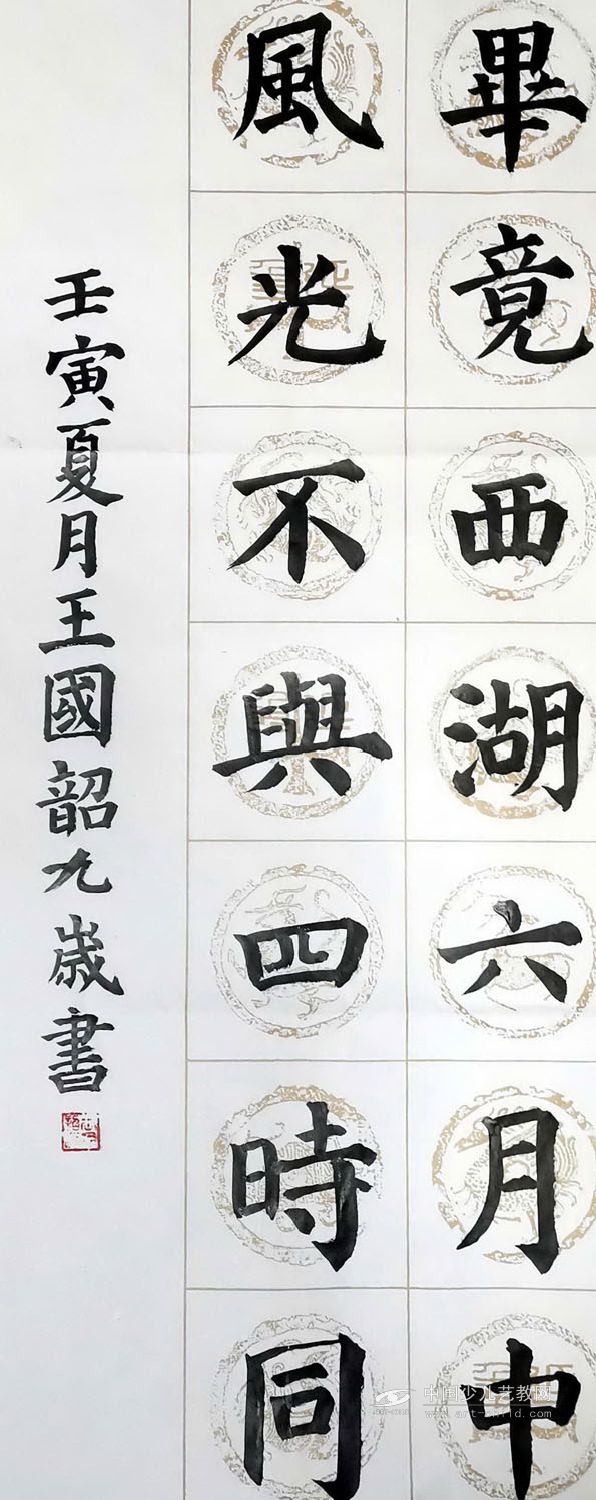 畢竟西湖六月中
風光不與四時同
壬寅夏月王國韶九歲書
中国少儿艺教网
www.art-child.com